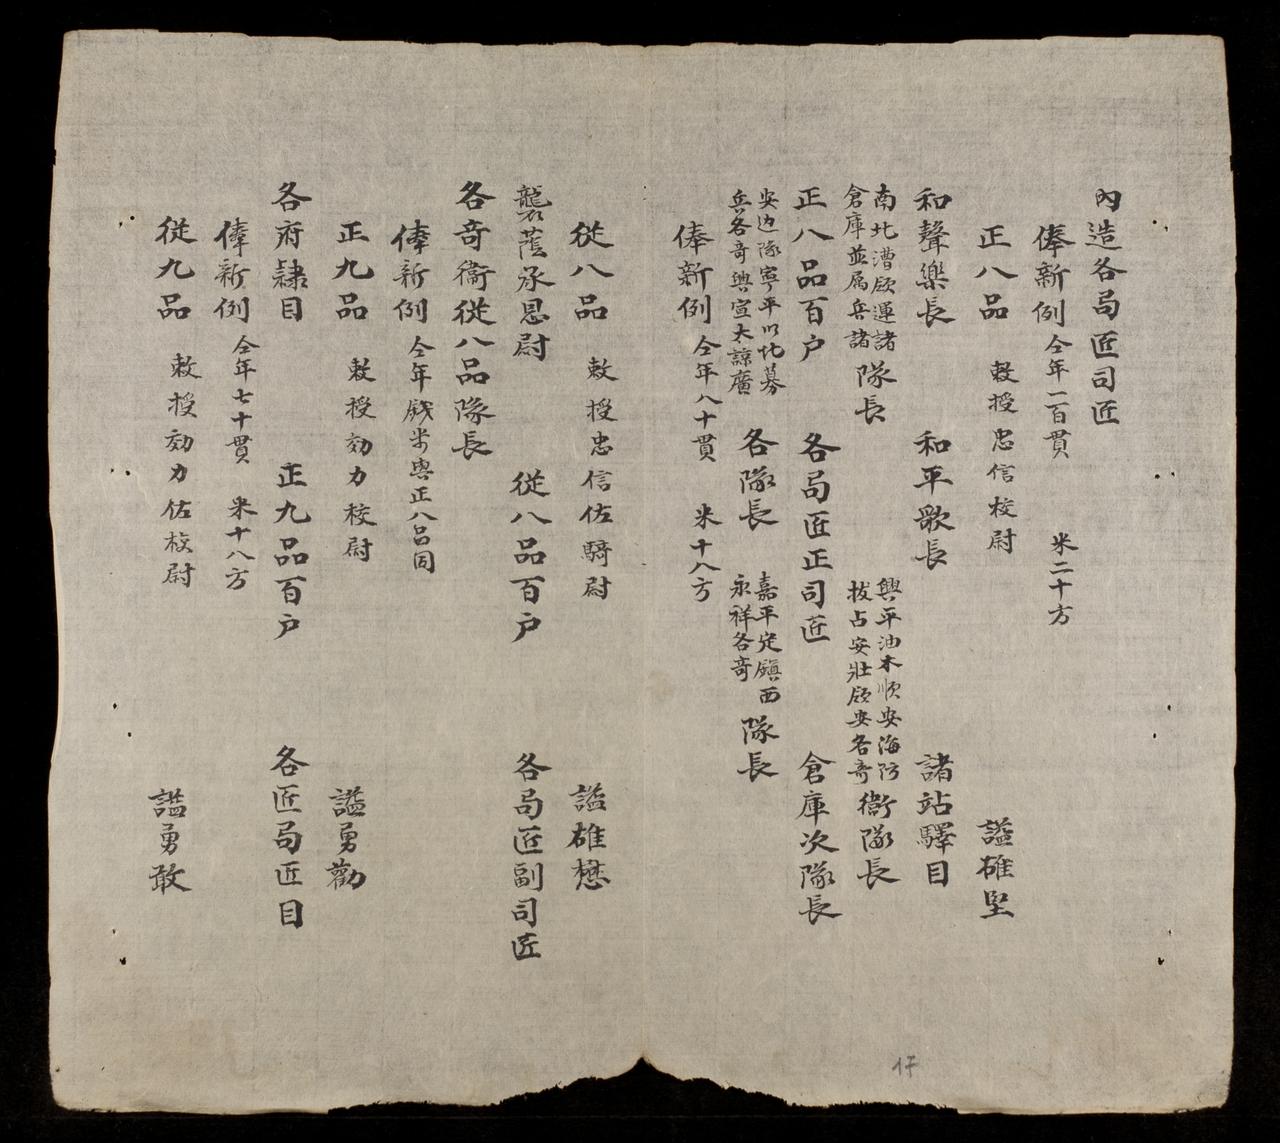 內造各局匠司匠
俸新例 仝年一百貫 米二十方
正八品 敕授忠信校尉 謚碓坚
和聲樂長 和平歌長 諸站驛目
南北漕𢮿運諸
倉庫並属兵諸 隊長
興平油木順安海防
拔占安壯𢮿安各奇 衞隊長
正八品百户 各局匠正司匠 倉庫次隊長
安边隊寧平以北募
兵各奇與宣太諒廣 各隊長
嘉平定鎮西
永祥各奇 隊長
俸新例 仝年八十貫 米十八方
從八品 敕授忠信佐騎尉 謚雄懋
襲蔭承恩尉 從八品百户 各局匠副司匠
各奇衞從八品隊長
俸新例 仝年錢米與正八品同
正九品 敕授効力校尉 謚勇勸
各府隸目 正九品百户 各匠局匠目
俸新例 仝年七十貫 米十八方
從九品 敕授効力佐校尉 謚勇敢
17